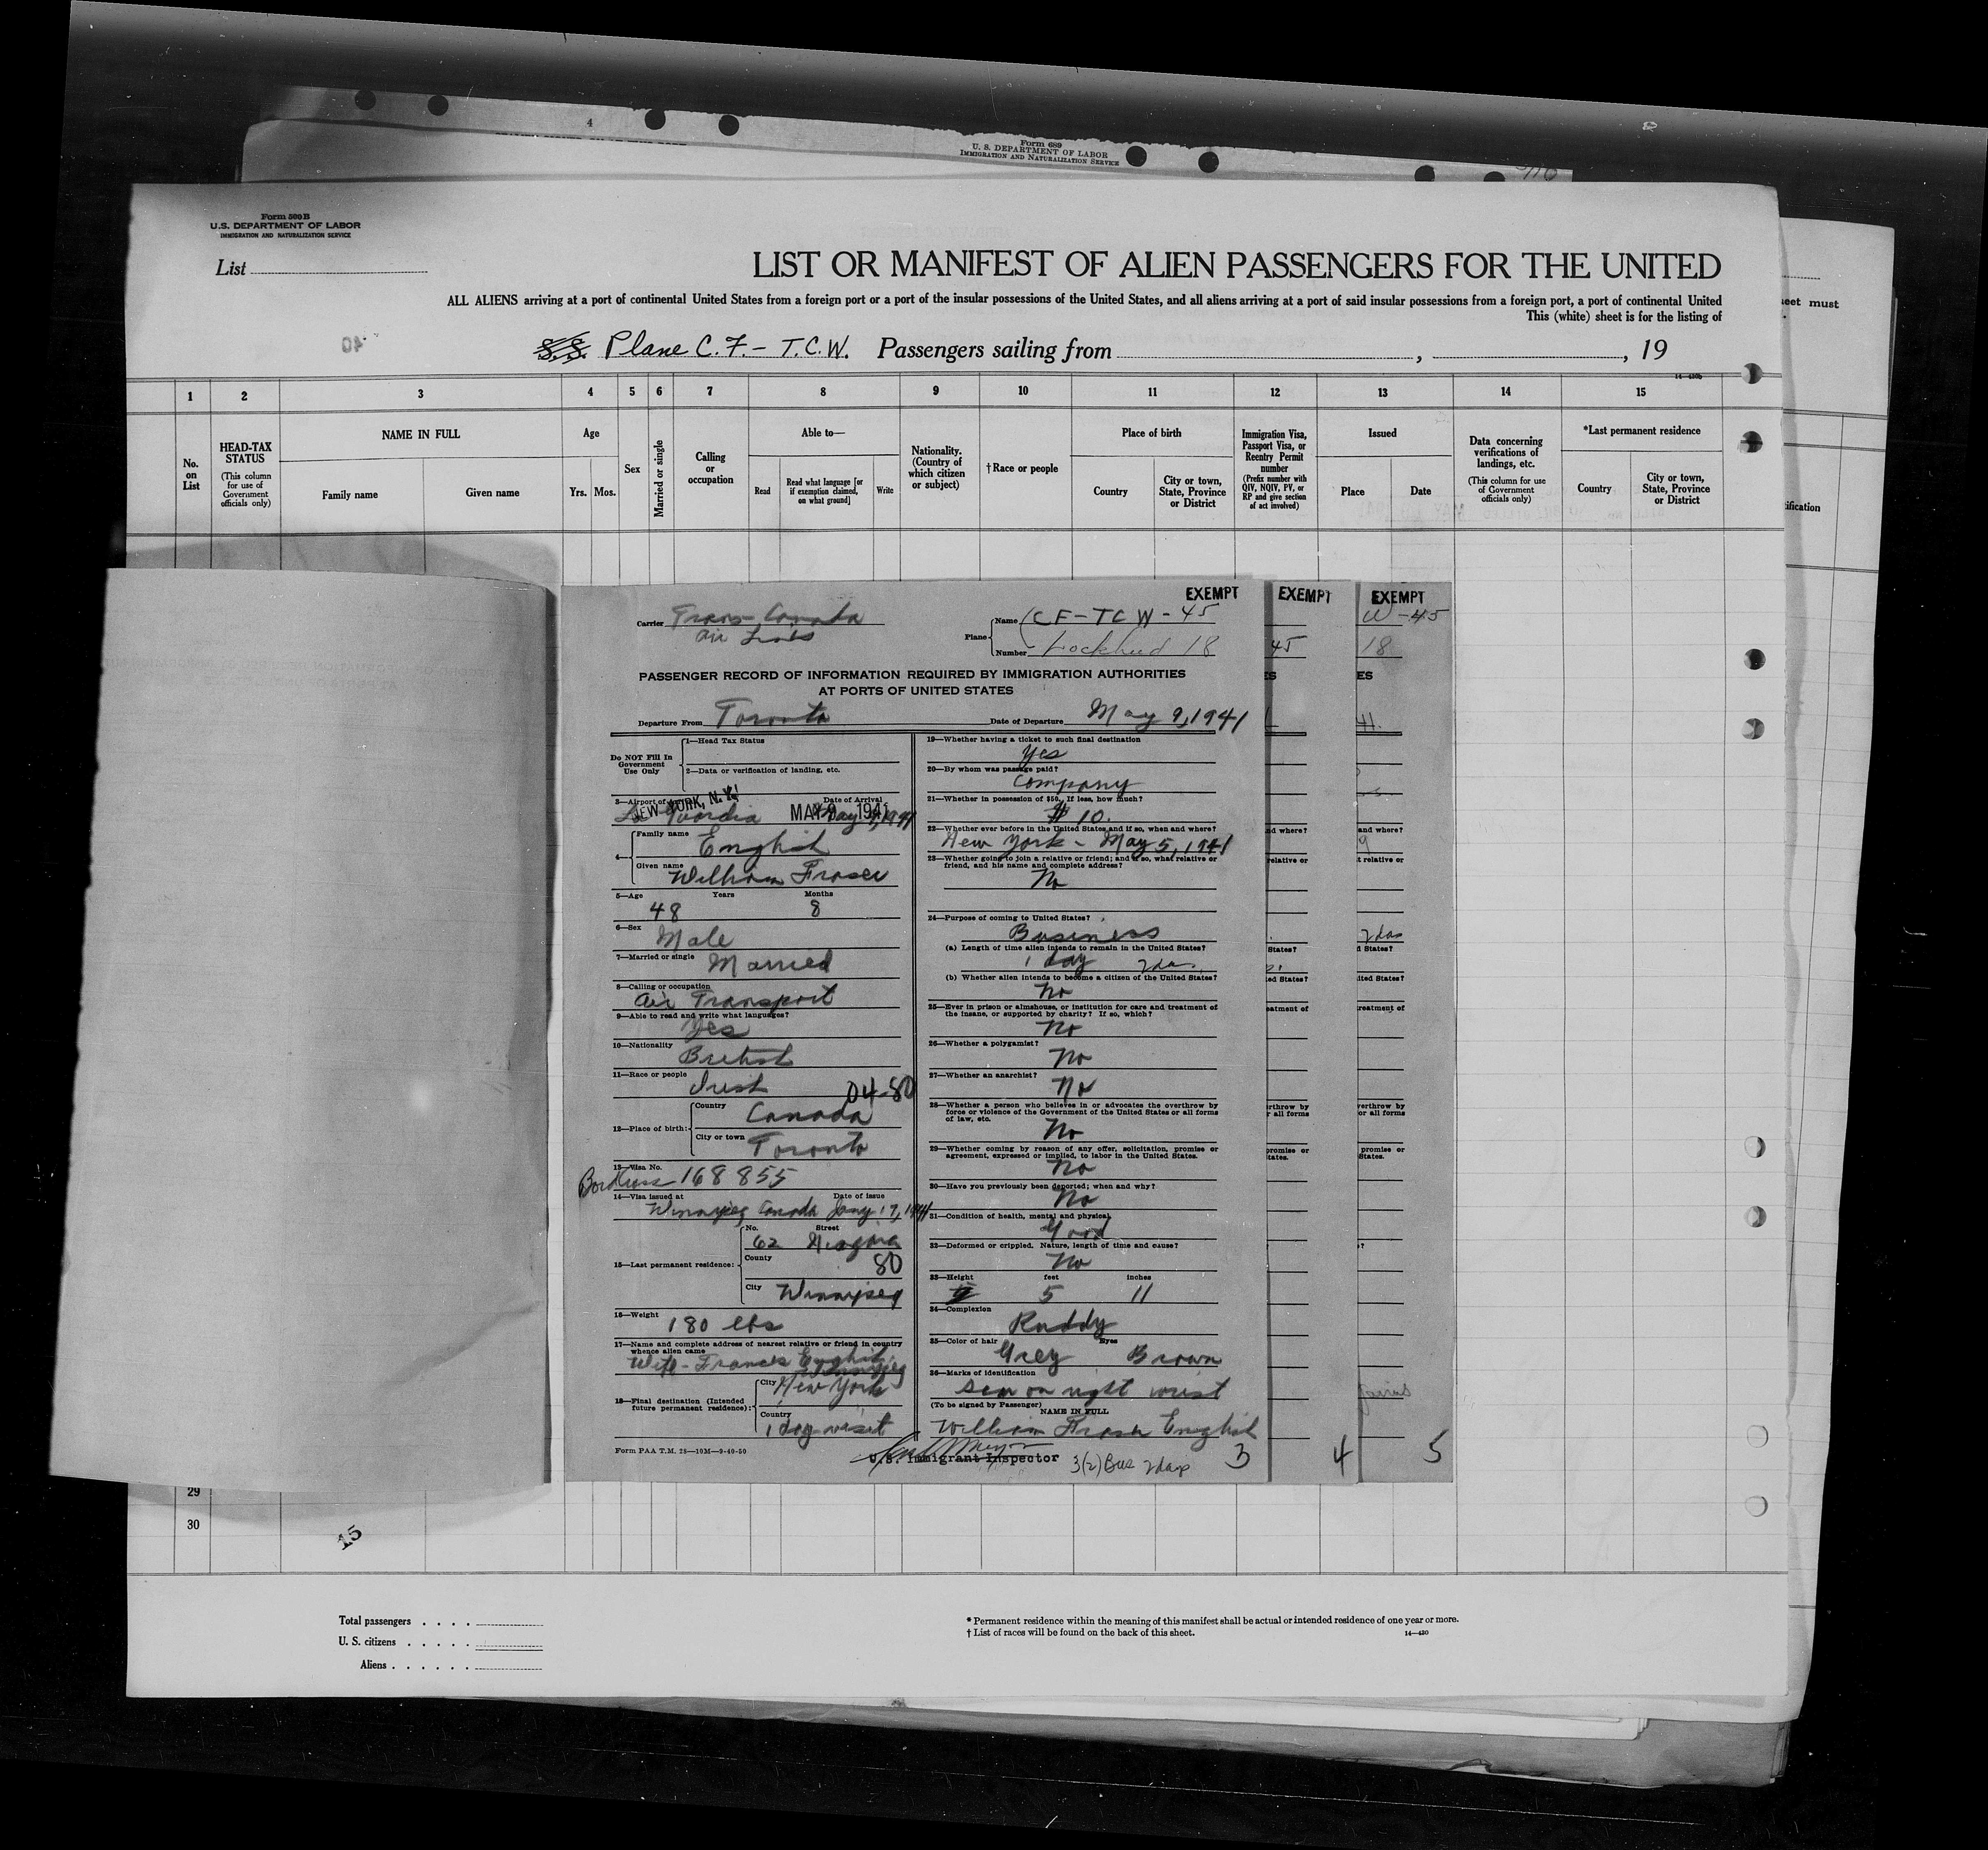 4
Form 689
U. S. DEPARTMENT OF LABOR
IMMIGRATION AND NATURALIZATION SERVICE
Form 500 B
U.S. DEPARTMENT OF LABOR
IMMIGRATION AND NATURALIZATION SERVICE
List
LIST OR MANIFEST OF ALIEN PASSENGERS FOR THE UNITED
ALL ALIENS arriving at a port of continental United States from a foreign port or a port of the insular possessions of the United States, and all aliens arriving at a port of said insular possessions from a foreign port, a port of continental United
This (white) sheet is for the listing of
eet must
40
S.S. Plane C.F.- T.C.W. Passengers sailing from , , 19
1 2 3 4 5 6 7 8 9 10 11 12 13 14 15
No. on List
HEAD-TAX STATUS
(This column for use of Government officials only)
NAME IN FULL
Family name Given name
Age
Yrs. Mos.
Sex
Married or single
Calling or occupation
Able to—
Read
Read what language [or if exemption claimed, on what ground]
Write
Nationality. (Country of which citizen or subject)
†Race or people
Place of birth
Country
City or town, State, Province or District
Immigration Visa, Passport Visa, or Reentry Permit number
(Prefix number with QIV, NQIV, PV, or RP and give section of act involved)
Issued
Place Date
Data concerning verifications of landings, etc.
(This column for use of Government officials only)
*Last permanent residence
Country
City or town, State, Province or District
ification
EXEMPT EXEMPT EXEMPT
Carrier Trans-Canada
Air Lines
Plane
Name CF-TCW-45
Number Lockheed 18
45
W-45
18
PASSENGER RECORD OF INFORMATION REQUIRED BY IMMIGRATION AUTHORITIES
AT PORTS OF UNITED STATES
Departure From Toronto Date of Departure May 9, 1941
41.
Do NOT Fill In Government Use Only
1—Head Tax Status
2—Data or verification of landing, etc.
3—Airport of Arrival Date of Arrival
NEW YORK, N.Y. MAY 9 1941
La Guardia May 9, 1941
4—
Family name English
Given name William Fraser
5—Age Years Months
48 8
6—Sex
Male
7—Married or single Married
8—Calling or occupation
Air Transport
9—Able to read and write what languages?
Yes
10—Nationality
British
11—Race or people
Irish 04-80
12—Place of birth:
Country
Canada
City or town
Toronto
13—Visa No.
168855
14—Visa issued at Date of issue
Winnipeg Canada Jany 17, 1941
15—Last permanent residence:
No. Street
62 Niagara
County
80
City Winnipeg
16—Weight
180 lbs
17—Name and complete address of nearest relative or friend in country
whence alien came
Wife - Frances English
Winnipeg
18—Final destination (Intended future permanent residence):
City New York
Country
1 day visit
Form PAA T.M. 28—10M—9-40-50
19—Whether having a ticket to such final destination
Yes
20—By whom was passage paid?
Company
21—Whether in possession of $50. If less, how much?
$ 10.
22—Whether ever before in the United States and if so, when and where?
New York - May 5, 1941
23—Whether going to join a relative or friend; and if so, what relative or
friend, and his name and complete address?
No
24—Purpose of coming to United States?
Business
(a) Length of time alien intends to remain in the United States?
1 day 2da.
(b) Whether alien intends to become a citizen of the United States?
No
25—Ever in prison or almshouse, or institution for care and treatment of
the insane, or supported by charity? If so, which?
No
26—Whether a polygamist?
No
27—Whether an anarchist?
No
28—Whether a person who believes in or advocates the overthrow by
force or violence of the Government of the United States or all forms
of law, etc.
No
29—Whether coming by reason of any offer, solicitation, promise or
agreement, expressed or implied, to labor in the United States.
No
30—Have you previously been deported; when and why?
No
31—Condition of health, mental and physical.
Good
32—Deformed or crippled. Nature, length of time and cause?
No
33—Height feet inches
5 11
34—Complexion
Ruddy
35—Color of hair Eyes
Grey Brown
36—Marks of identification
Scar on right wrist
(To be signed by Passenger)
NAME IN FULL
William Fraser English
U.S. Immigrant Inspector 3(2) Bus 2days
3 4 5
29
30
15
Total passengers
U. S. citizens
Aliens
* Permanent residence within the meaning of this manifest shall be actual or intended residence of one year or more.
† List of races will be found on the back of this sheet.
14—420